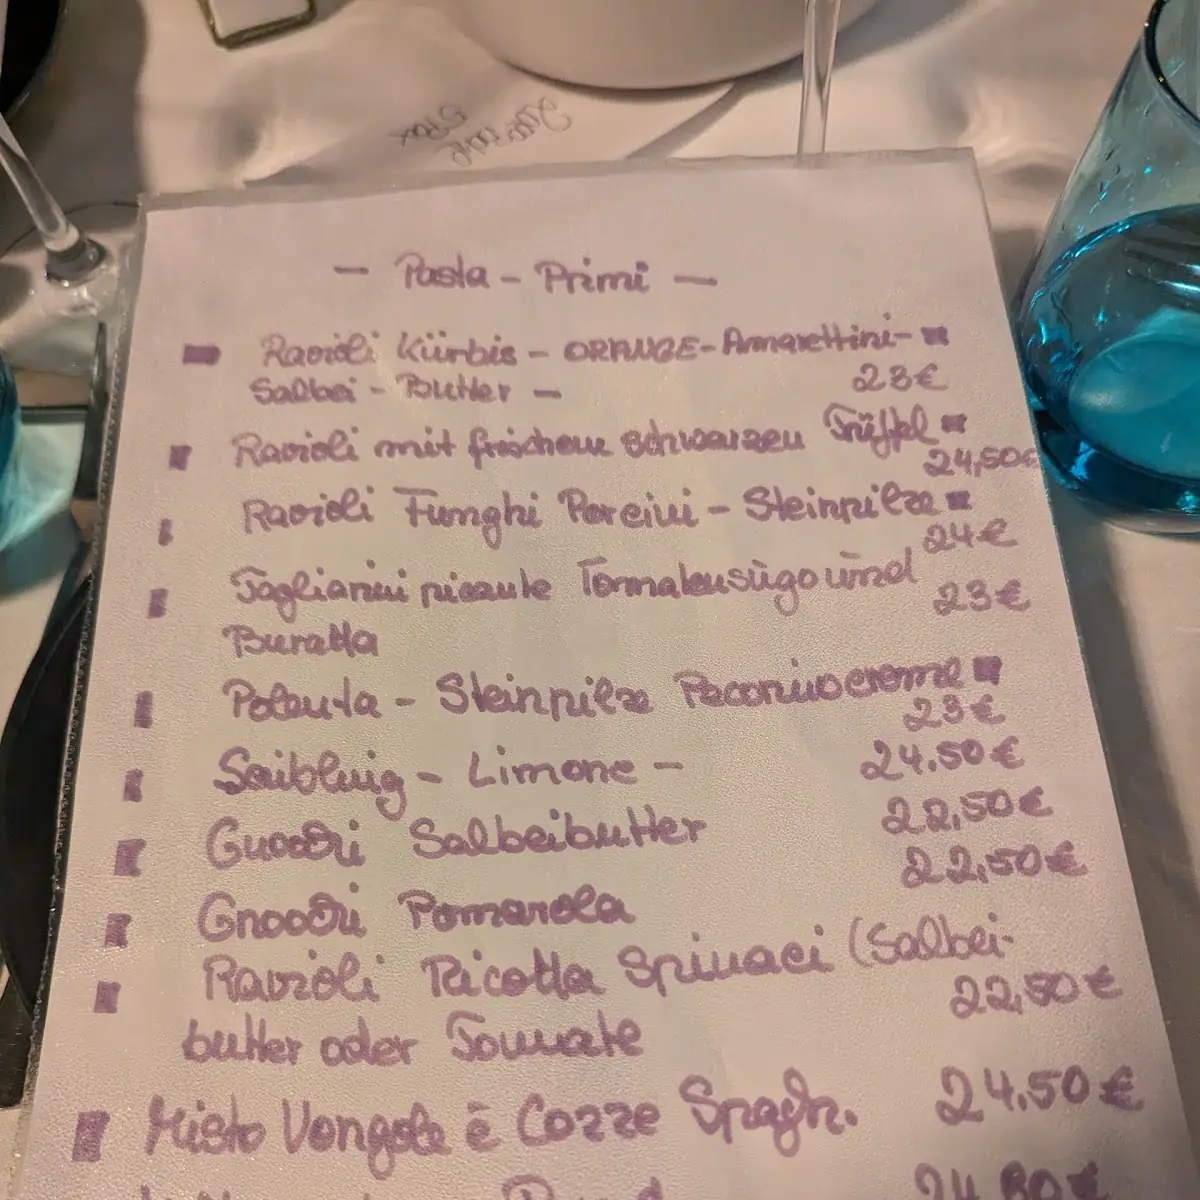 - Pasta - Primi -
Ravioli Kürbis - ORANGE - Amarettini -
Salbei - Butter - 23€
Ravioli mit frischem schwarzen Trüffel
24,50€
Ravioli Funghi Porcini - Steinpilze
24€
Taglianini picante Tomatensugo und
23€
Buratta
Polenta - Steinpilze Pecorinocreme
23€
Saibling - Limone - 24.50€
Gnocchi Salbeibutter 22,50€
22,50€
Gnocchi Pomarola
Ravioli Ricotta Spinaci (Salbei-
22,50€
butter oder Tomate
Misto Vongole è Cozze Spagh. 24.50€